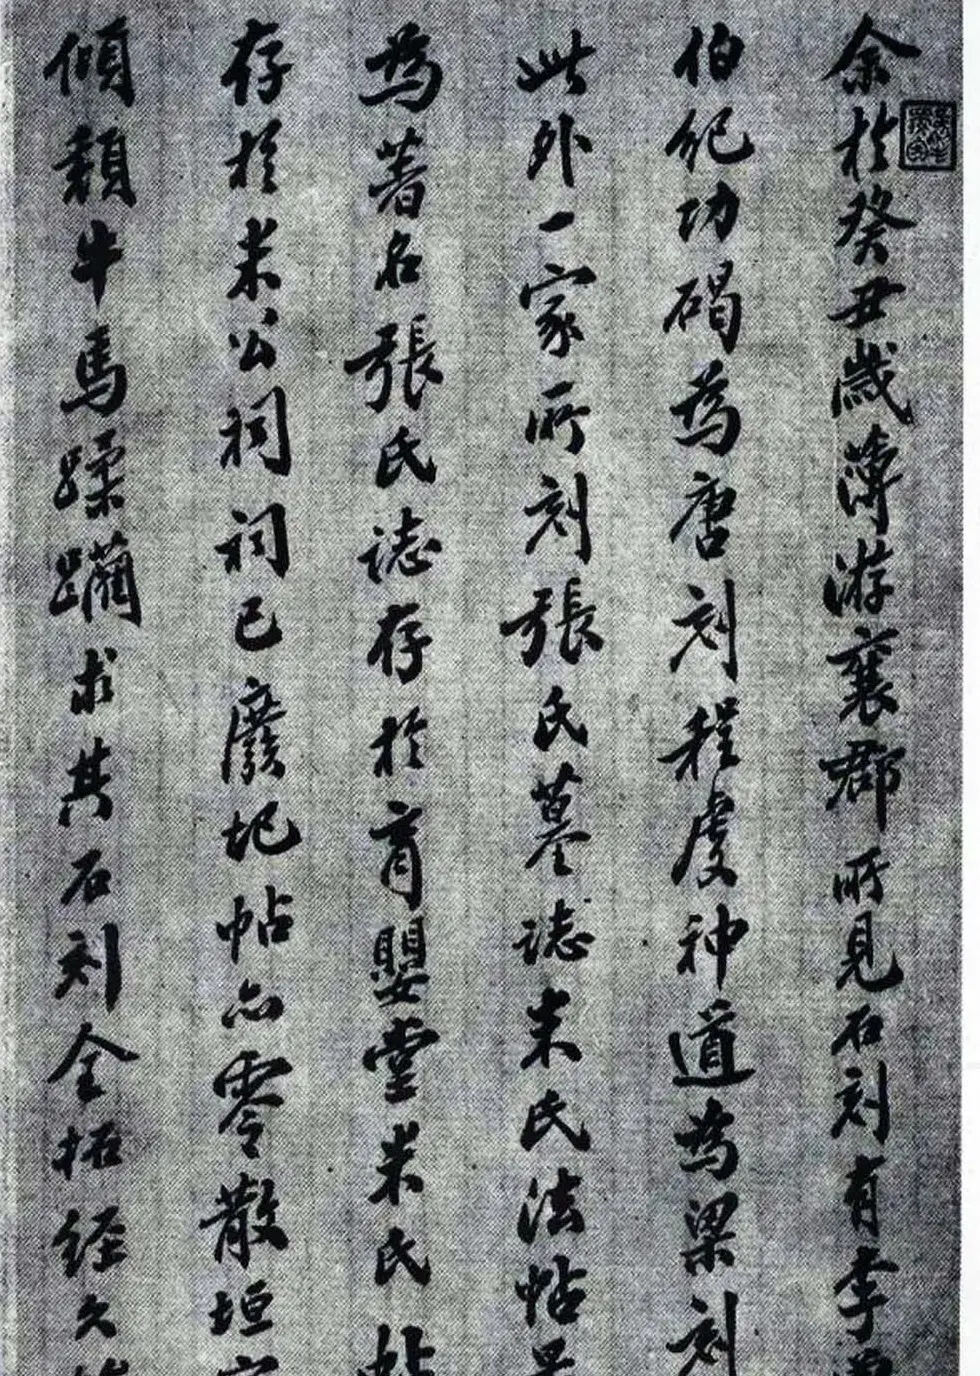 余於癸丑歲薄游襄郡所見石刻有李
伯紀功碣為唐刻程虔神道為梁刻
此外一家所刻張氏墓誌米氏法帖
為著名張氏誌存於育嬰堂米氏帖
存於米公祠祠已廢圮帖亦零散垣
傾頹牛馬蹂躪求其石刻全拓經久